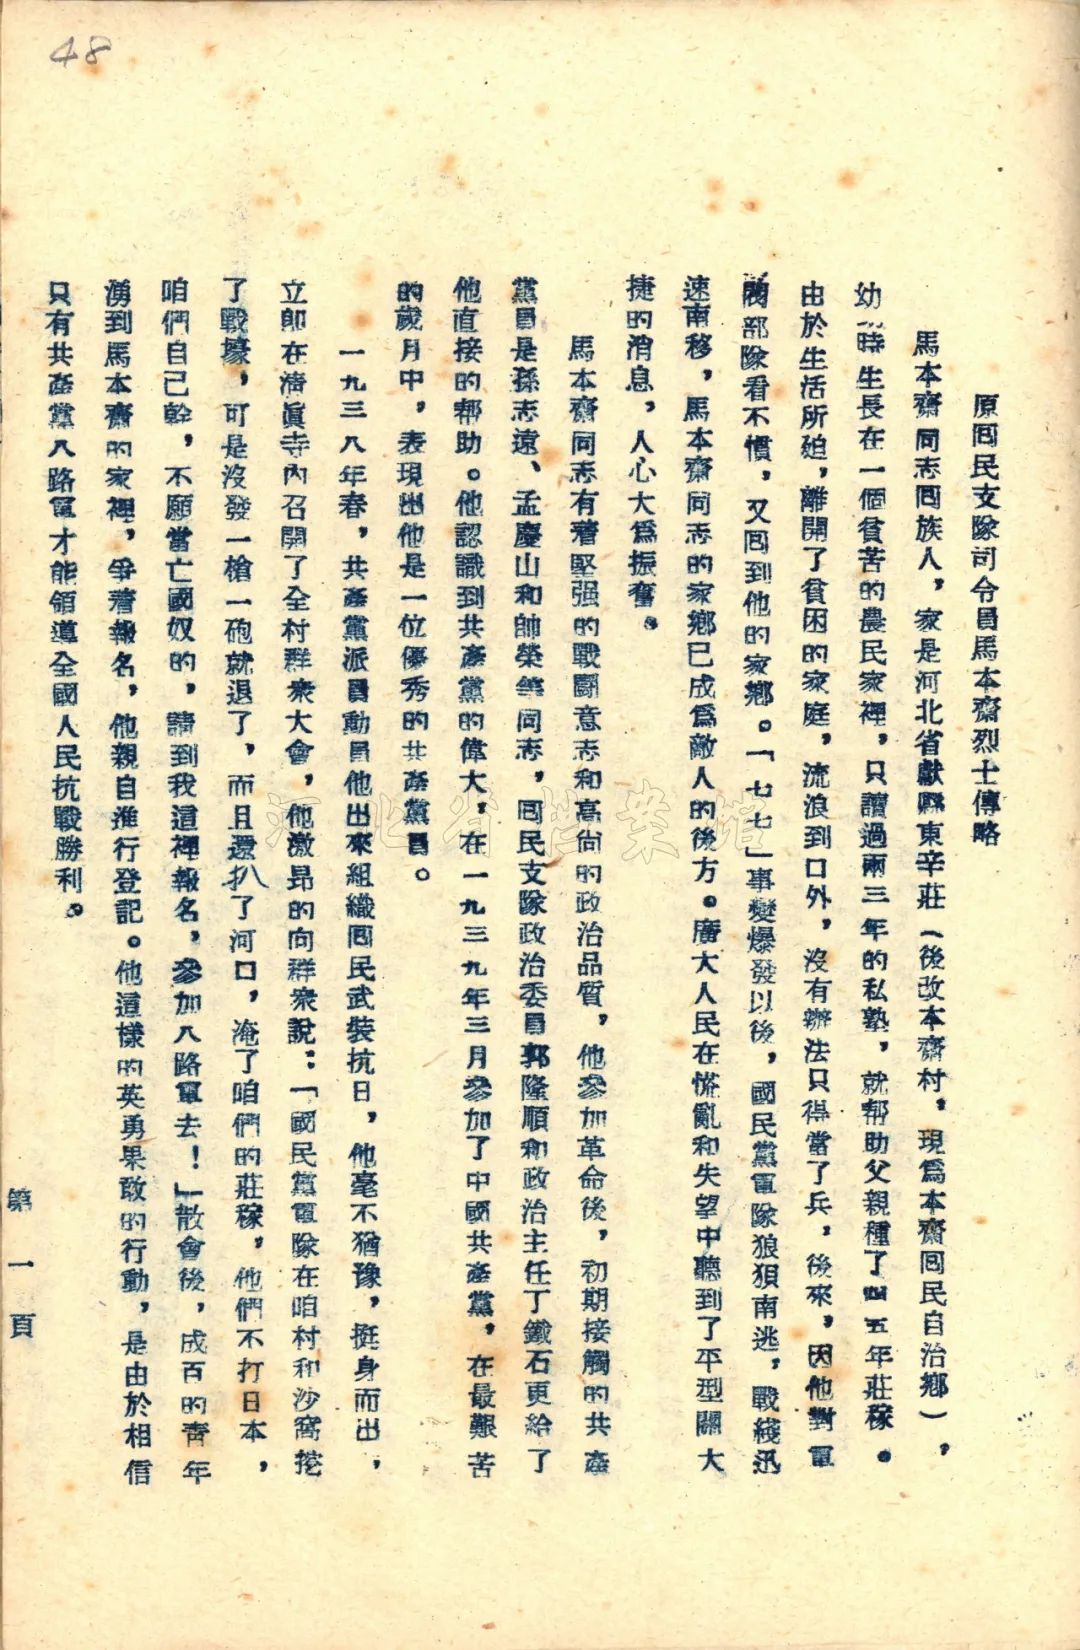 48
原囘民支隊司令員馬本齋烈士傳略
馬本齋同志囘族人，家是河北省獻縣東辛莊（後改本齋村，現爲本齋囘民自治鄉），
幼時生長在一個貧苦的農民家裡，只讀過兩三年的私塾，就帮助父親種了四五年莊稼。
由於生活所廹，離開了貧困的家庭，流浪到口外，沒有辦法只得當了兵，後來，因他對軍
閥部隊看不慣，又囘到他的家鄉。「七七」事變爆發以後，國民黨軍隊狼狽南逃，戰綫迅
速南移，馬本齋同志的家鄉已成爲敵人的後方。廣大人民在慌亂和失望中聽到了平型關大
捷的消息，人心大爲振奮。
馬本齋同志有着堅强的戰闘意志和高尚的政治品質，他參加革命後，初期接觸的共產
黨員是孫志遠、孟慶山和帥榮等同志，囘民支隊政治委員郭隆順和政治主任丁鐵石更給了
他直接的帮助。他認識到共產黨的偉大，在一九三九年三月參加了中國共產黨，在最艱苦
的歲月中，表現出他是一位優秀的共產黨員。
一九三八年春，共產黨派員動員他出來組織囘民武裝抗日，他毫不猶豫，挺身而出，
立卽在清眞寺內召開了全村群衆大會，他激昂的向群衆說：「國民黨軍隊在咱村和沙窩挖
了戰壕，可是沒發一槍一砲就退了，而且還扒了河口，淹了咱們的莊稼，他們不打日本，
咱們自己幹，不願當亡國奴的，請到我這裡報名，參加八路軍去！」散會後，成百的靑年
湧到馬本齋的家裡，爭着報名，他親自進行登記。他這樣的英勇果敢的行動，是由於相信
只有共產黨八路軍才能領導全國人民抗戰勝利。
第一頁
河北省档案馆